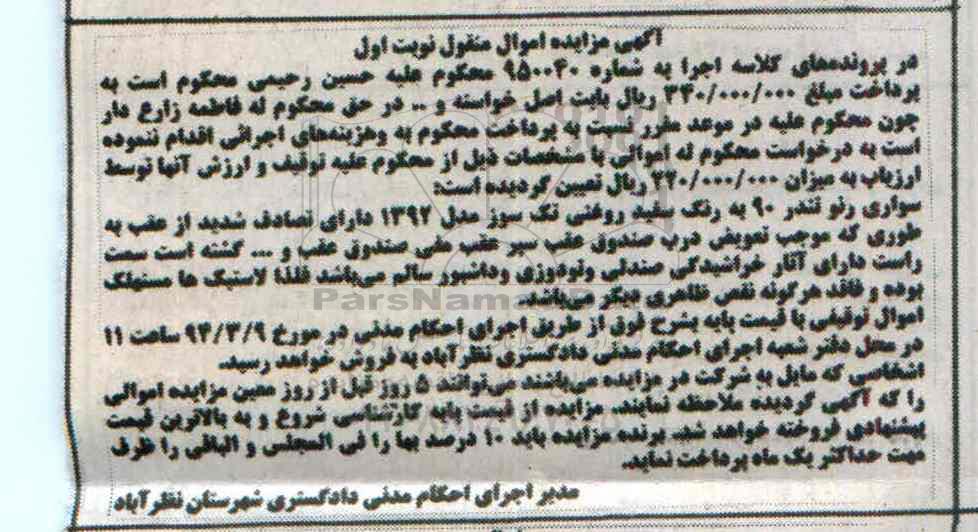 آگهی مزایده اموال منقول نوبت اول
در پرونده‌های کلاسه اجرا به شماره ۹۵۰۰۴۰ محکوم علیه حسین رحیمی محکوم است به
پرداخت مبلغ ۳۴۰/۰۰۰/۰۰۰ ریال بابت اصل خواسته و .. در حق محکوم له فاطمه زارع دار
چون محکوم علیه در موعد مقرر نسبت به پرداخت محکوم به وهزینه‌های اجرائی اقدام ننموده
است به درخواست محکوم له اموالی با مشخصات ذیل از محکوم علیه توقیف و ارزش آنها توسط
ارزیاب به میزان ۲۲۰/۰۰۰/۰۰۰ ریال تعیین گردیده است:
سواری رنو تندر ۹۰ به رنگ سفید روغنی تک سوز مدل ۱۳۹۲ دارای تصادف شدید از عقب به
طوری که موجب تعویض درب صندوق عقب سپر عقب صندوق عقب و ... گشته است سمت
راست دارای آثار خراشیدگی صندلی وتودوزی وداشبور سالم می‌باشد فلذا لاستیک ها مستهلک
بوده و فاقد هرگونه نقص ظاهری دیگر می‌باشد.
اموال توقیفی با قیمت پایه بشرح فوق از طریق اجرای احکام مدنی در مورخ ۹۴/۳/۹ ساعت ۱۱
در محل دفتر شعبه اجرای احکام مدنی دادگستری نظرآباد به فروش خواهد رسید.
اشخاصی که مایل به شرکت در مزایده می‌باشند می‌توانند ۵ روز قبل از روز معین مزایده اموالی
را که آگهی گردیده ملاحظه نمایند. مزایده از قیمت پایه کارشناسی شروع و به بالاترین قیمت
پیشنهادی فروخته خواهد شد. برنده مزایده باید ۱۰ درصد بها را فی المجلس و الباقی را ظرف
مهت حداکثر یک ماه پرداخت نماید.
مدیر اجرای احکام مدنی دادگستری شهرستان نظرآباد
ParsNamad